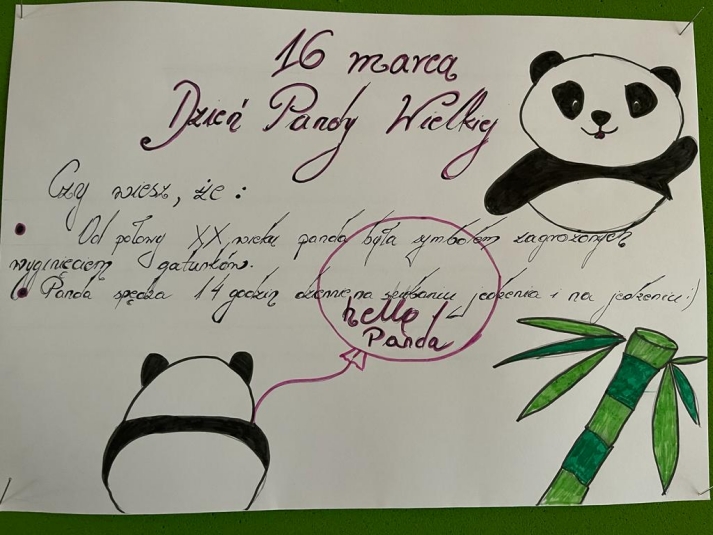 16 marca
Dzień Pandy Wielkiej
Czy wiesz, że :
Od połowy XX wieku panda była symbolem zagrożonych
wyginięciem gatunków.
Panda spędza 14 godzin dziennie na szukaniu jedzenia i na jedzeniu :)
hello!
Panda